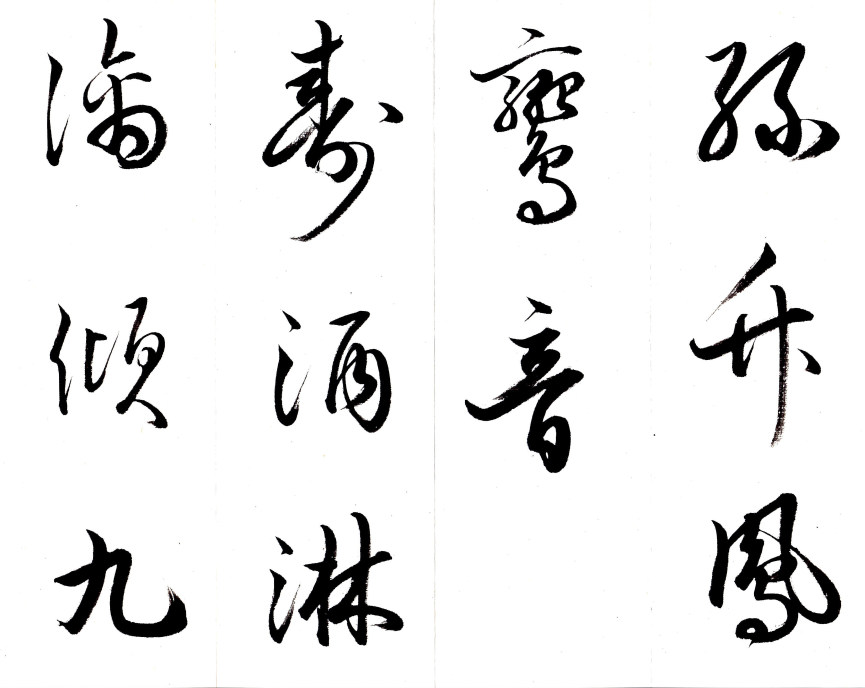 孫升鳳
鸞音
壽酒淋
漓傾九